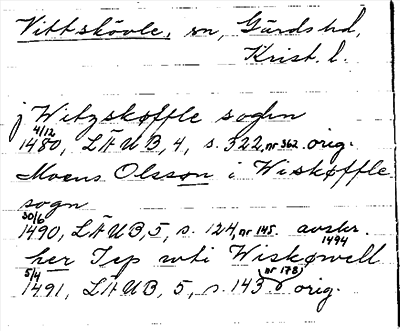 Vittskövle, sn, Gärds hd,
Krist. l.
j Witzskøffle soghn
4/12
1480, LÄUB, 4, s. 322, nr 362. orig.
Moens Olsson i Wiskøffle
sogn
30/6
1490, LÄUB, 5, s. 124, nr 145. avskr.
1494
her Jep uti Wiskøwell
5/4 (nr 178)
1491, LÄUB, 5, s. 143 orig.